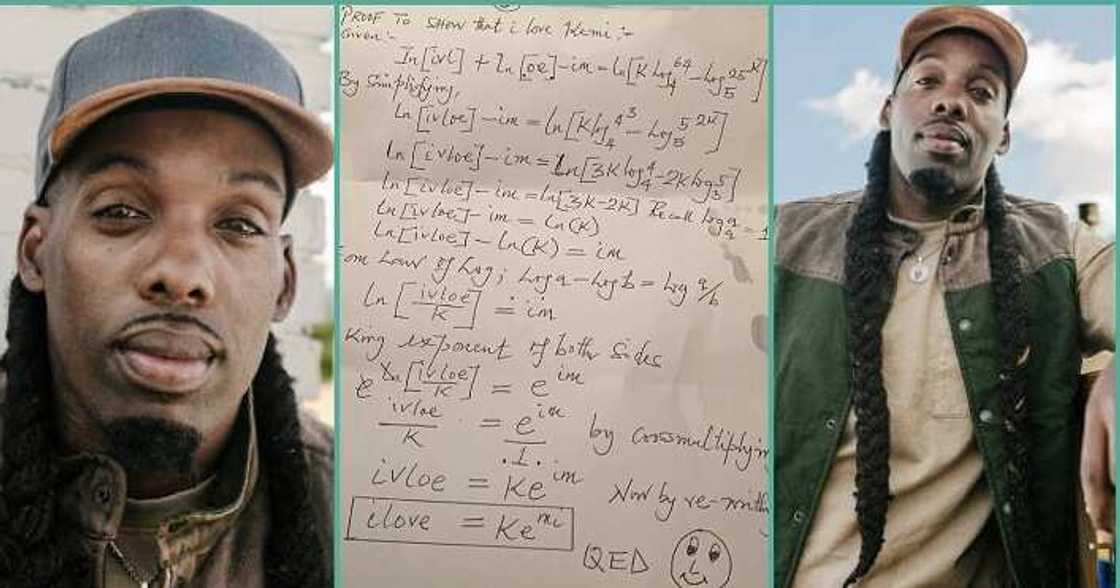 PROOF TO SHOW that i love Kemi :-
Given:-
In[ivl] + ln[oe] - im = ln[K log₄⁶⁴ - log₅²⁵ᴷ]
By simplifying,
ln[ivloe] - im = ln[K log₄⁴³ - log₅⁵²ᴷ]
ln[ivloe] - im = ln[3K log₄⁴ - 2K log₅⁵]
ln[ivloe] - im = ln[3K - 2K] Recall logₐᵃ = 1
ln[ivloe] - im = ln(K)
ln[ivloe] - ln(K) = im
om Law of log; log a - log b = log a/b
ln[ivloe/K] = im
King exponent of both sides
e^ln[ivloe/K] = e^im
ivloe/K = e^im/1 by crossmultiplyin
ivloe = Ke^im Now by re-writin
ilove = Ke^mi
QED